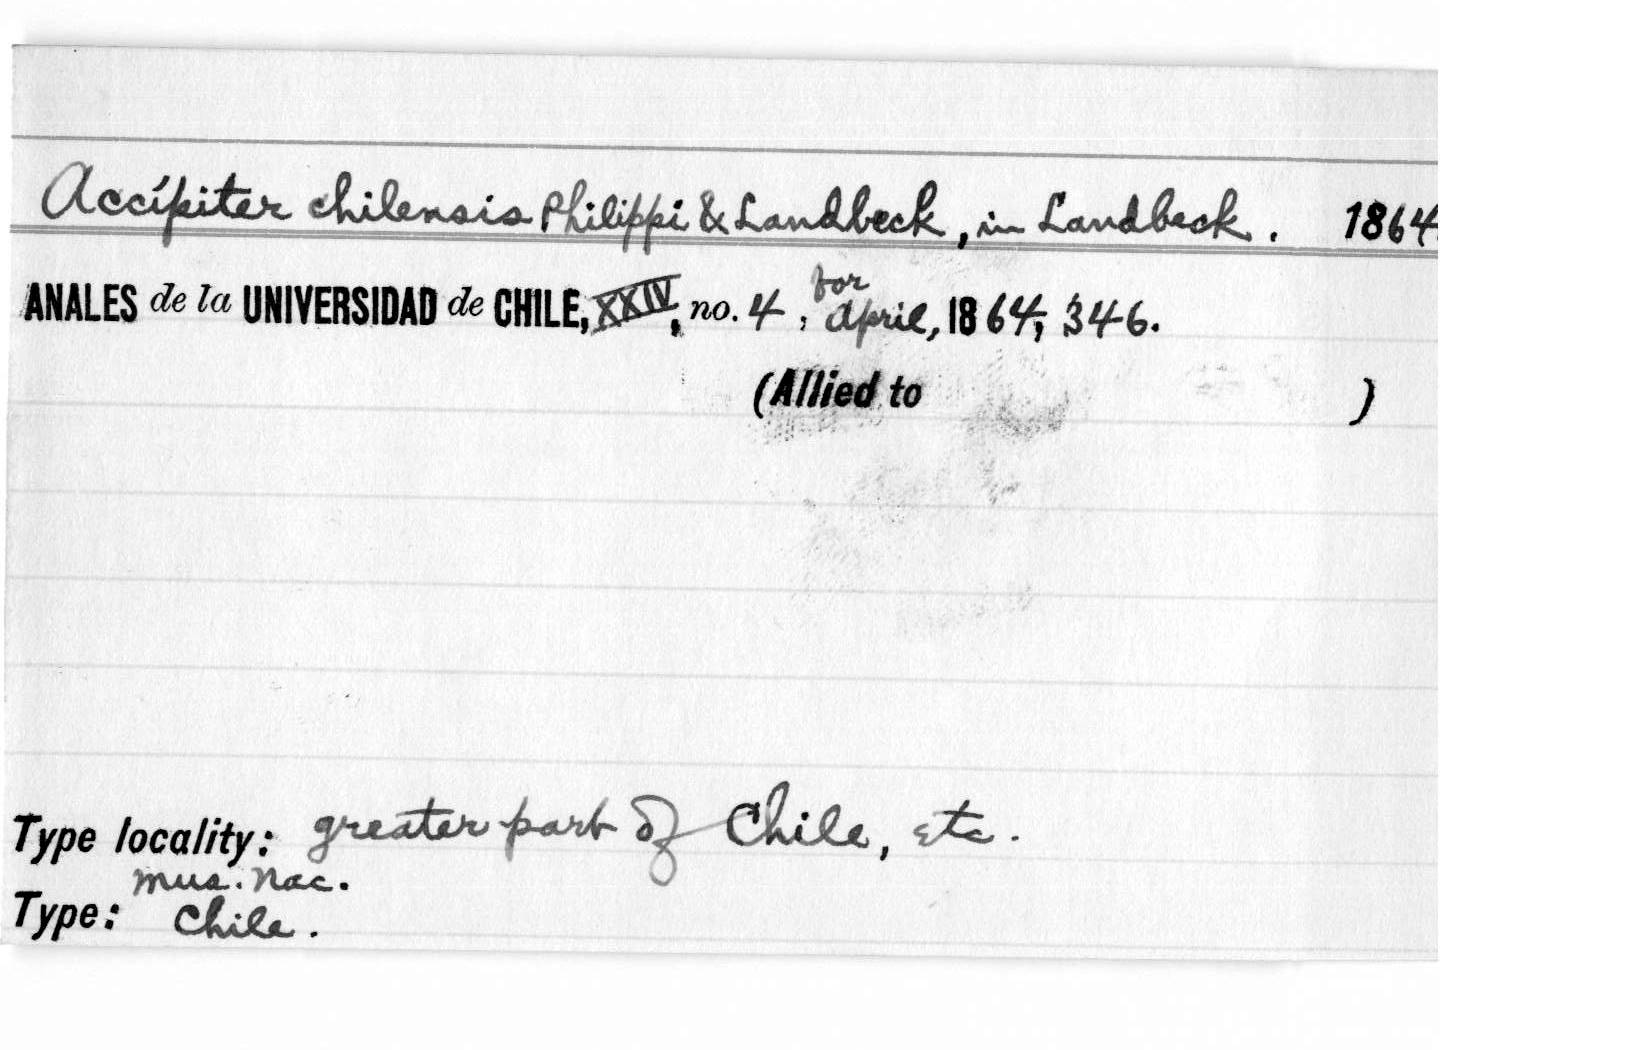 Accipiter chilensis Philippi & Landbeck, in Landbeck. 1864.
ANALES de la UNIVERSIDAD de CHILE, XXIV, no. 4, for April, 1864, 346.
(Allied to )
Type locality: greater part of Chile, etc.
Mus. Nac.
Type: Chile.